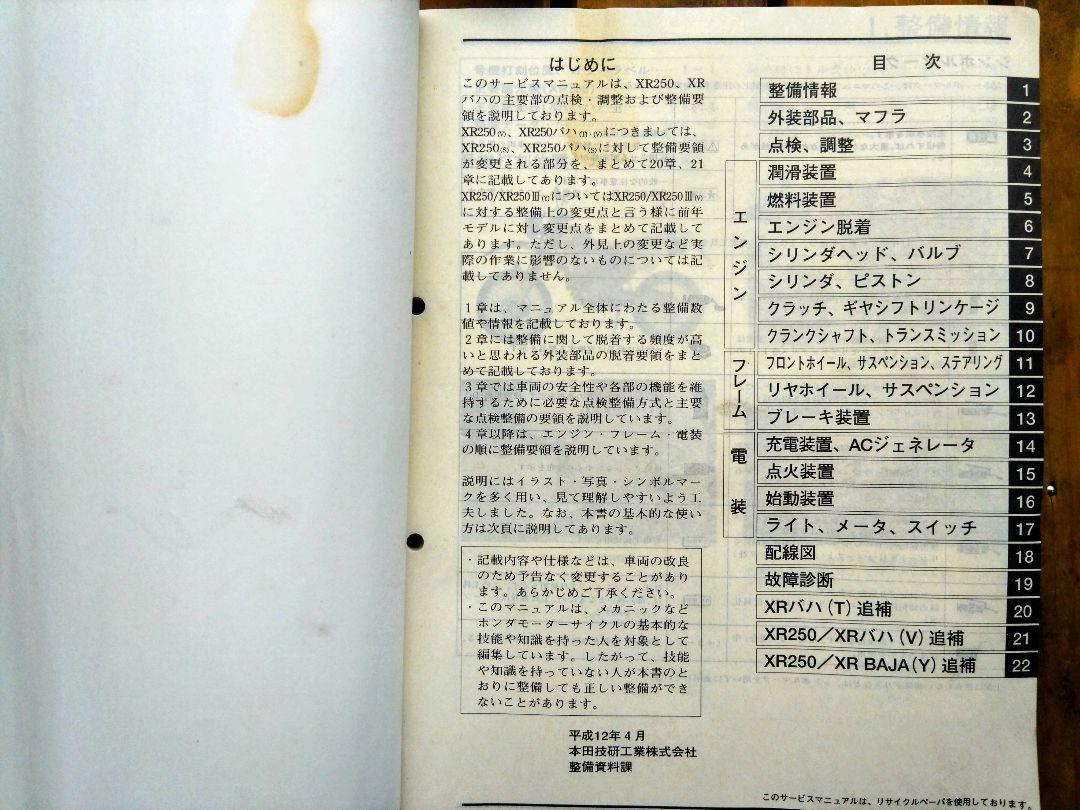 はじめに
このサービスマニュアルは、XR250、XR
バハの主要部の点検・調整および整備要
領を説明しております。
XR250(V)、XR250バハ(T)・(V)につきましては、
XR250(S)、XR250バハ(S)に対して整備要領
が変更される部分を、まとめて20章、21
章に記載してあります。
XR250/XR250Ⅲ(Y)についてはXR250/XR250Ⅲ(V)
に対する整備上の変更点と言う様に前年
モデルに対し変更点をまとめて記載して
あります。ただし、外見上の変更など実
際の作業に影響のないものについては記
載してありません。
1章は、マニュアル全体にわたる整備数
値や情報を記載しております。
2章には整備に関して脱着する頻度が高
いと思われる外装部品の脱着要領をまと
めて記載しております。
3章では車両の安全性や各部の機能を維
持するために必要な点検整備方式と主要
な点検整備の要領を説明しています。
4章以降は、エンジン・フレーム・電装
の順に整備要領を説明しています。
説明にはイラスト・写真・シンボルマー
クを多く用い、見て理解しやすいよう工
夫しました。なお、本書の基本的な使い
方は次頁に説明してあります。
・記載内容や仕様などは、車両の改良
のため予告なく変更することがあり
ます。あらかじめご了承ください。
・このマニュアルは、メカニックなど
ホンダモーターサイクルの基本的な
技能や知識を持った人を対象として
編集しています。したがって、技能
や知識を持っていない人が本書のと
おりに整備しても正しい整備ができ
ないことがあります。
平成12年4月
本田技研工業株式会社
整備資料課
目 次
整備情報 1
外装部品、マフラ 2
点検、調整 3
エンジン
潤滑装置 4
燃料装置 5
エンジン脱着 6
シリンダヘッド、バルブ 7
シリンダ、ピストン 8
クラッチ、ギヤシフトリンケージ 9
クランクシャフト、トランスミッション 10
フレーム
フロントホイール、サスペンション、ステアリング 11
リヤホイール、サスペンション 12
ブレーキ装置 13
電装
充電装置、ACジェネレータ 14
点火装置 15
始動装置 16
ライト、メータ、スイッチ 17
配線図 18
故障診断 19
XRバハ（T）追補 20
XR250／XRバハ（V）追補 21
XR250／XR BAJA（Y）追補 22
このサービスマニュアルは、リサイクルペーパを使用しております。